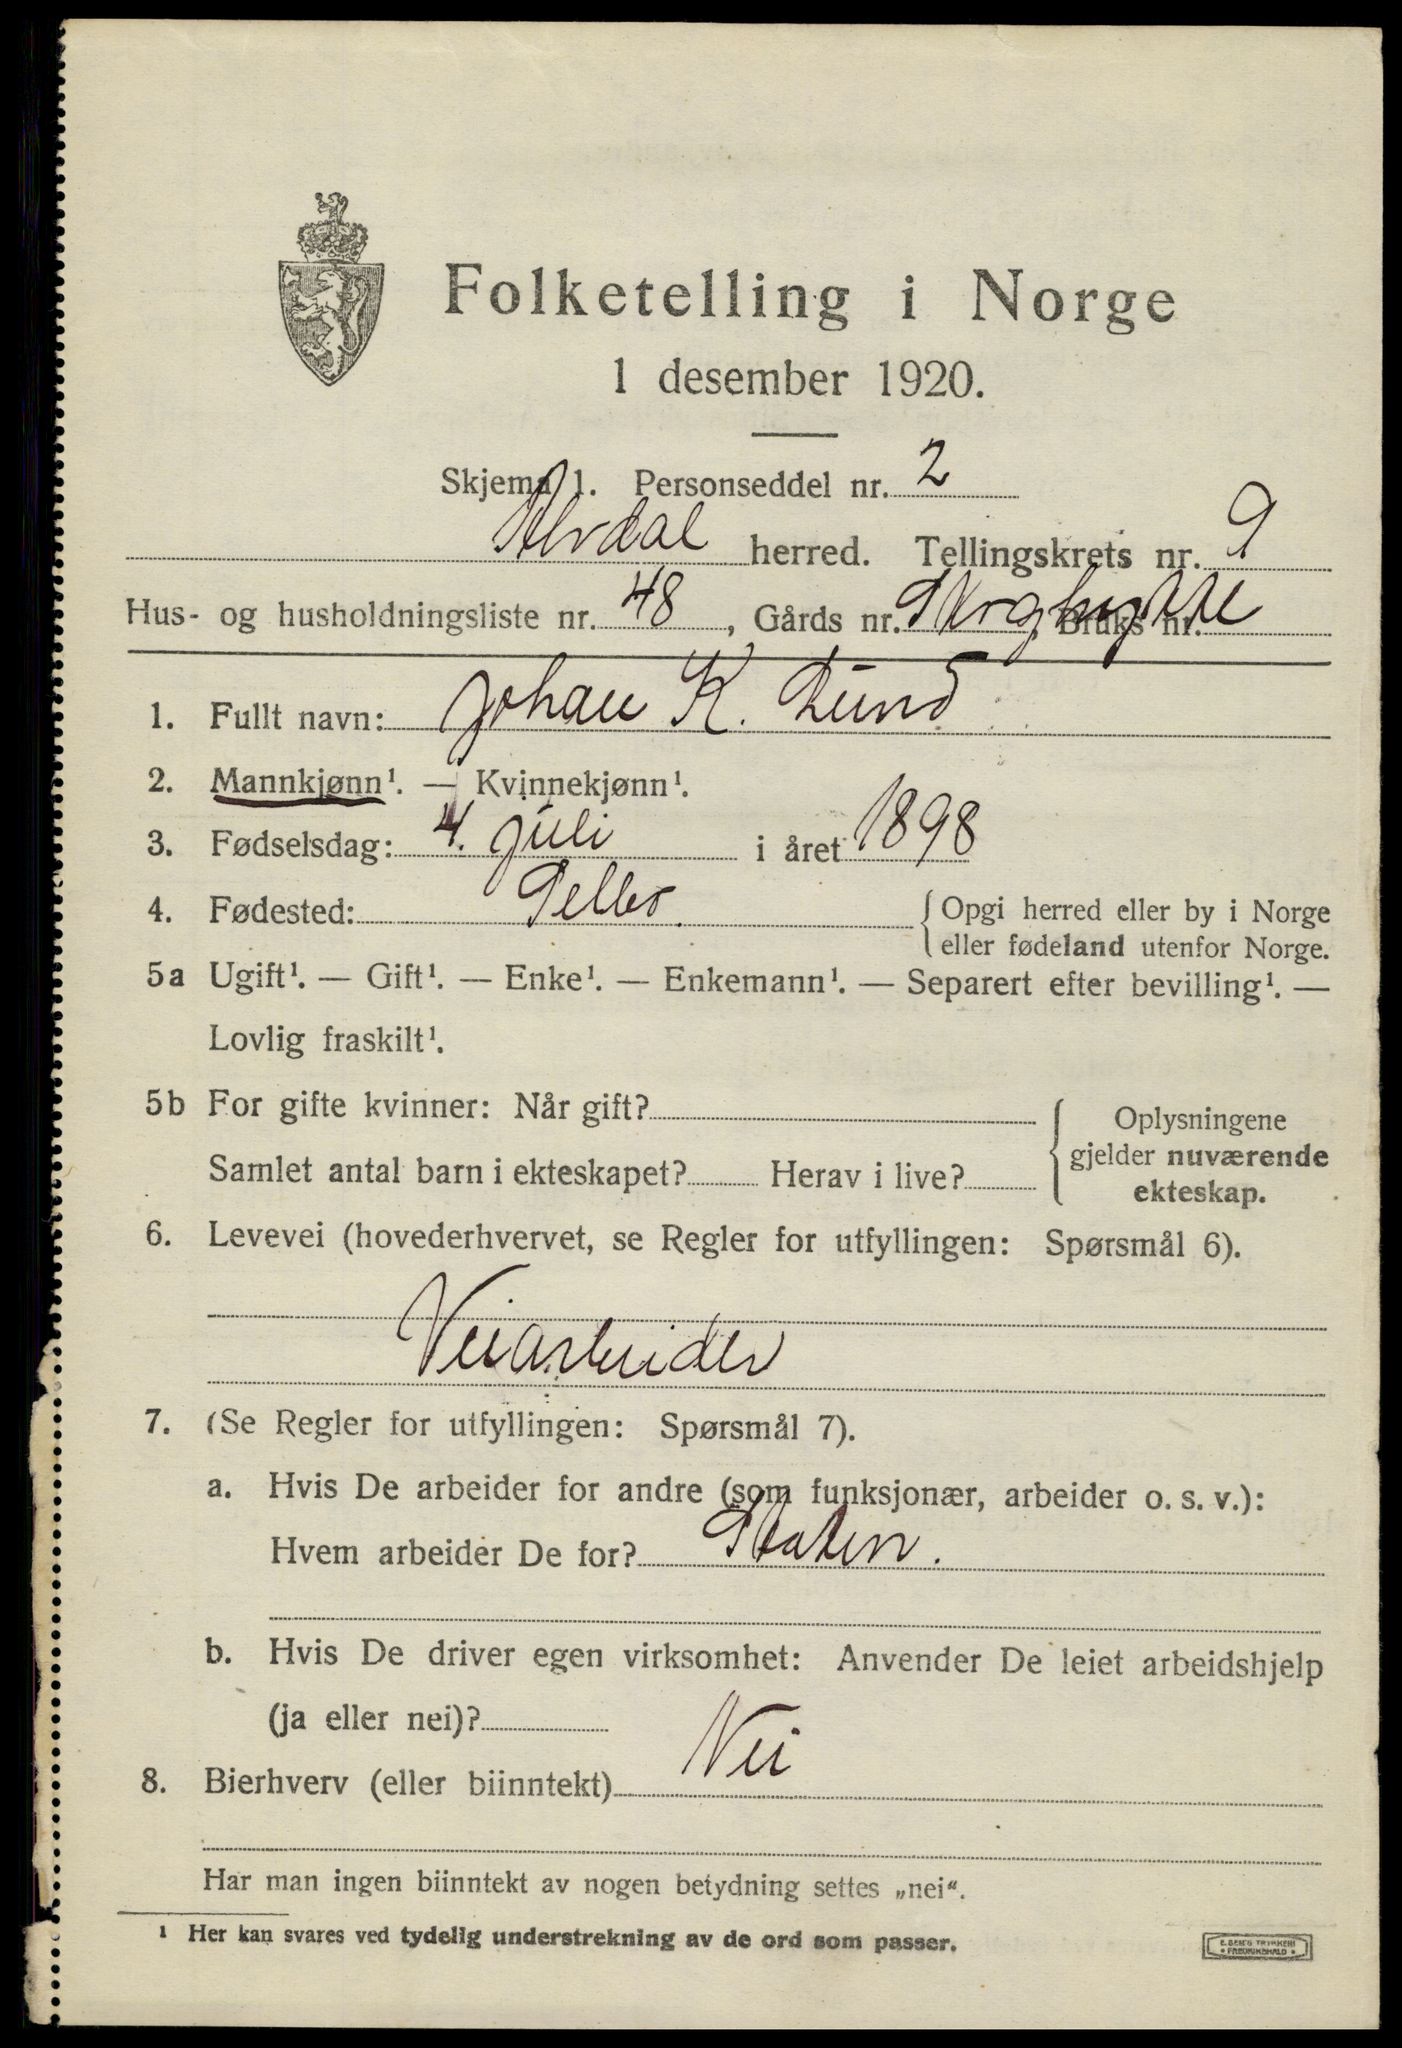 Folketelling i Norge
1 desember 1920.
Skjema 1. Personseddel nr. 2
Alvdal herred. Tellingskrets nr. 9
Hus- og husholdningsliste nr. 48, Gårds nr. , Bruks nr.
1. Fullt navn: Johan K. Lund
2. Mannkjønn¹. — Kvinnekjønn¹.
3. Fødselsdag: 4. juli i året 1898
4. Fødested: Selbo. Opgi herred eller by i Norge
eller fødeland utenfor Norge.
5a Ugift¹. — Gift¹. — Enke¹. — Enkemann¹. — Separert efter bevilling¹. —
Lovlig fraskilt¹.
5b For gifte kvinner: Når gift?
Samlet antal barn i ekteskapet? Herav i live?
Oplysningene
gjelder nuværende
ekteskap.
6. Levevei (hovederhvervet, se Regler for utfyllingen: Spørsmål 6).
Veiarbeider
7. (Se Regler for utfyllingen: Spørsmål 7).
a. Hvis De arbeider for andre (som funksjonær, arbeider o. s. v.):
Hvem arbeider De for? Staten.
b. Hvis De driver egen virksomhet: Anvender De leiet arbeidshjelp
(ja eller nei)?
8. Bierhverv (eller biinntekt) Nei
Har man ingen biinntekt av nogen betydning settes „nei“.
¹ Her kan svares ved tydelig understrekning av de ord som passer.
E. SEM'S TRYKKERI
• FREDRIKSHALD •